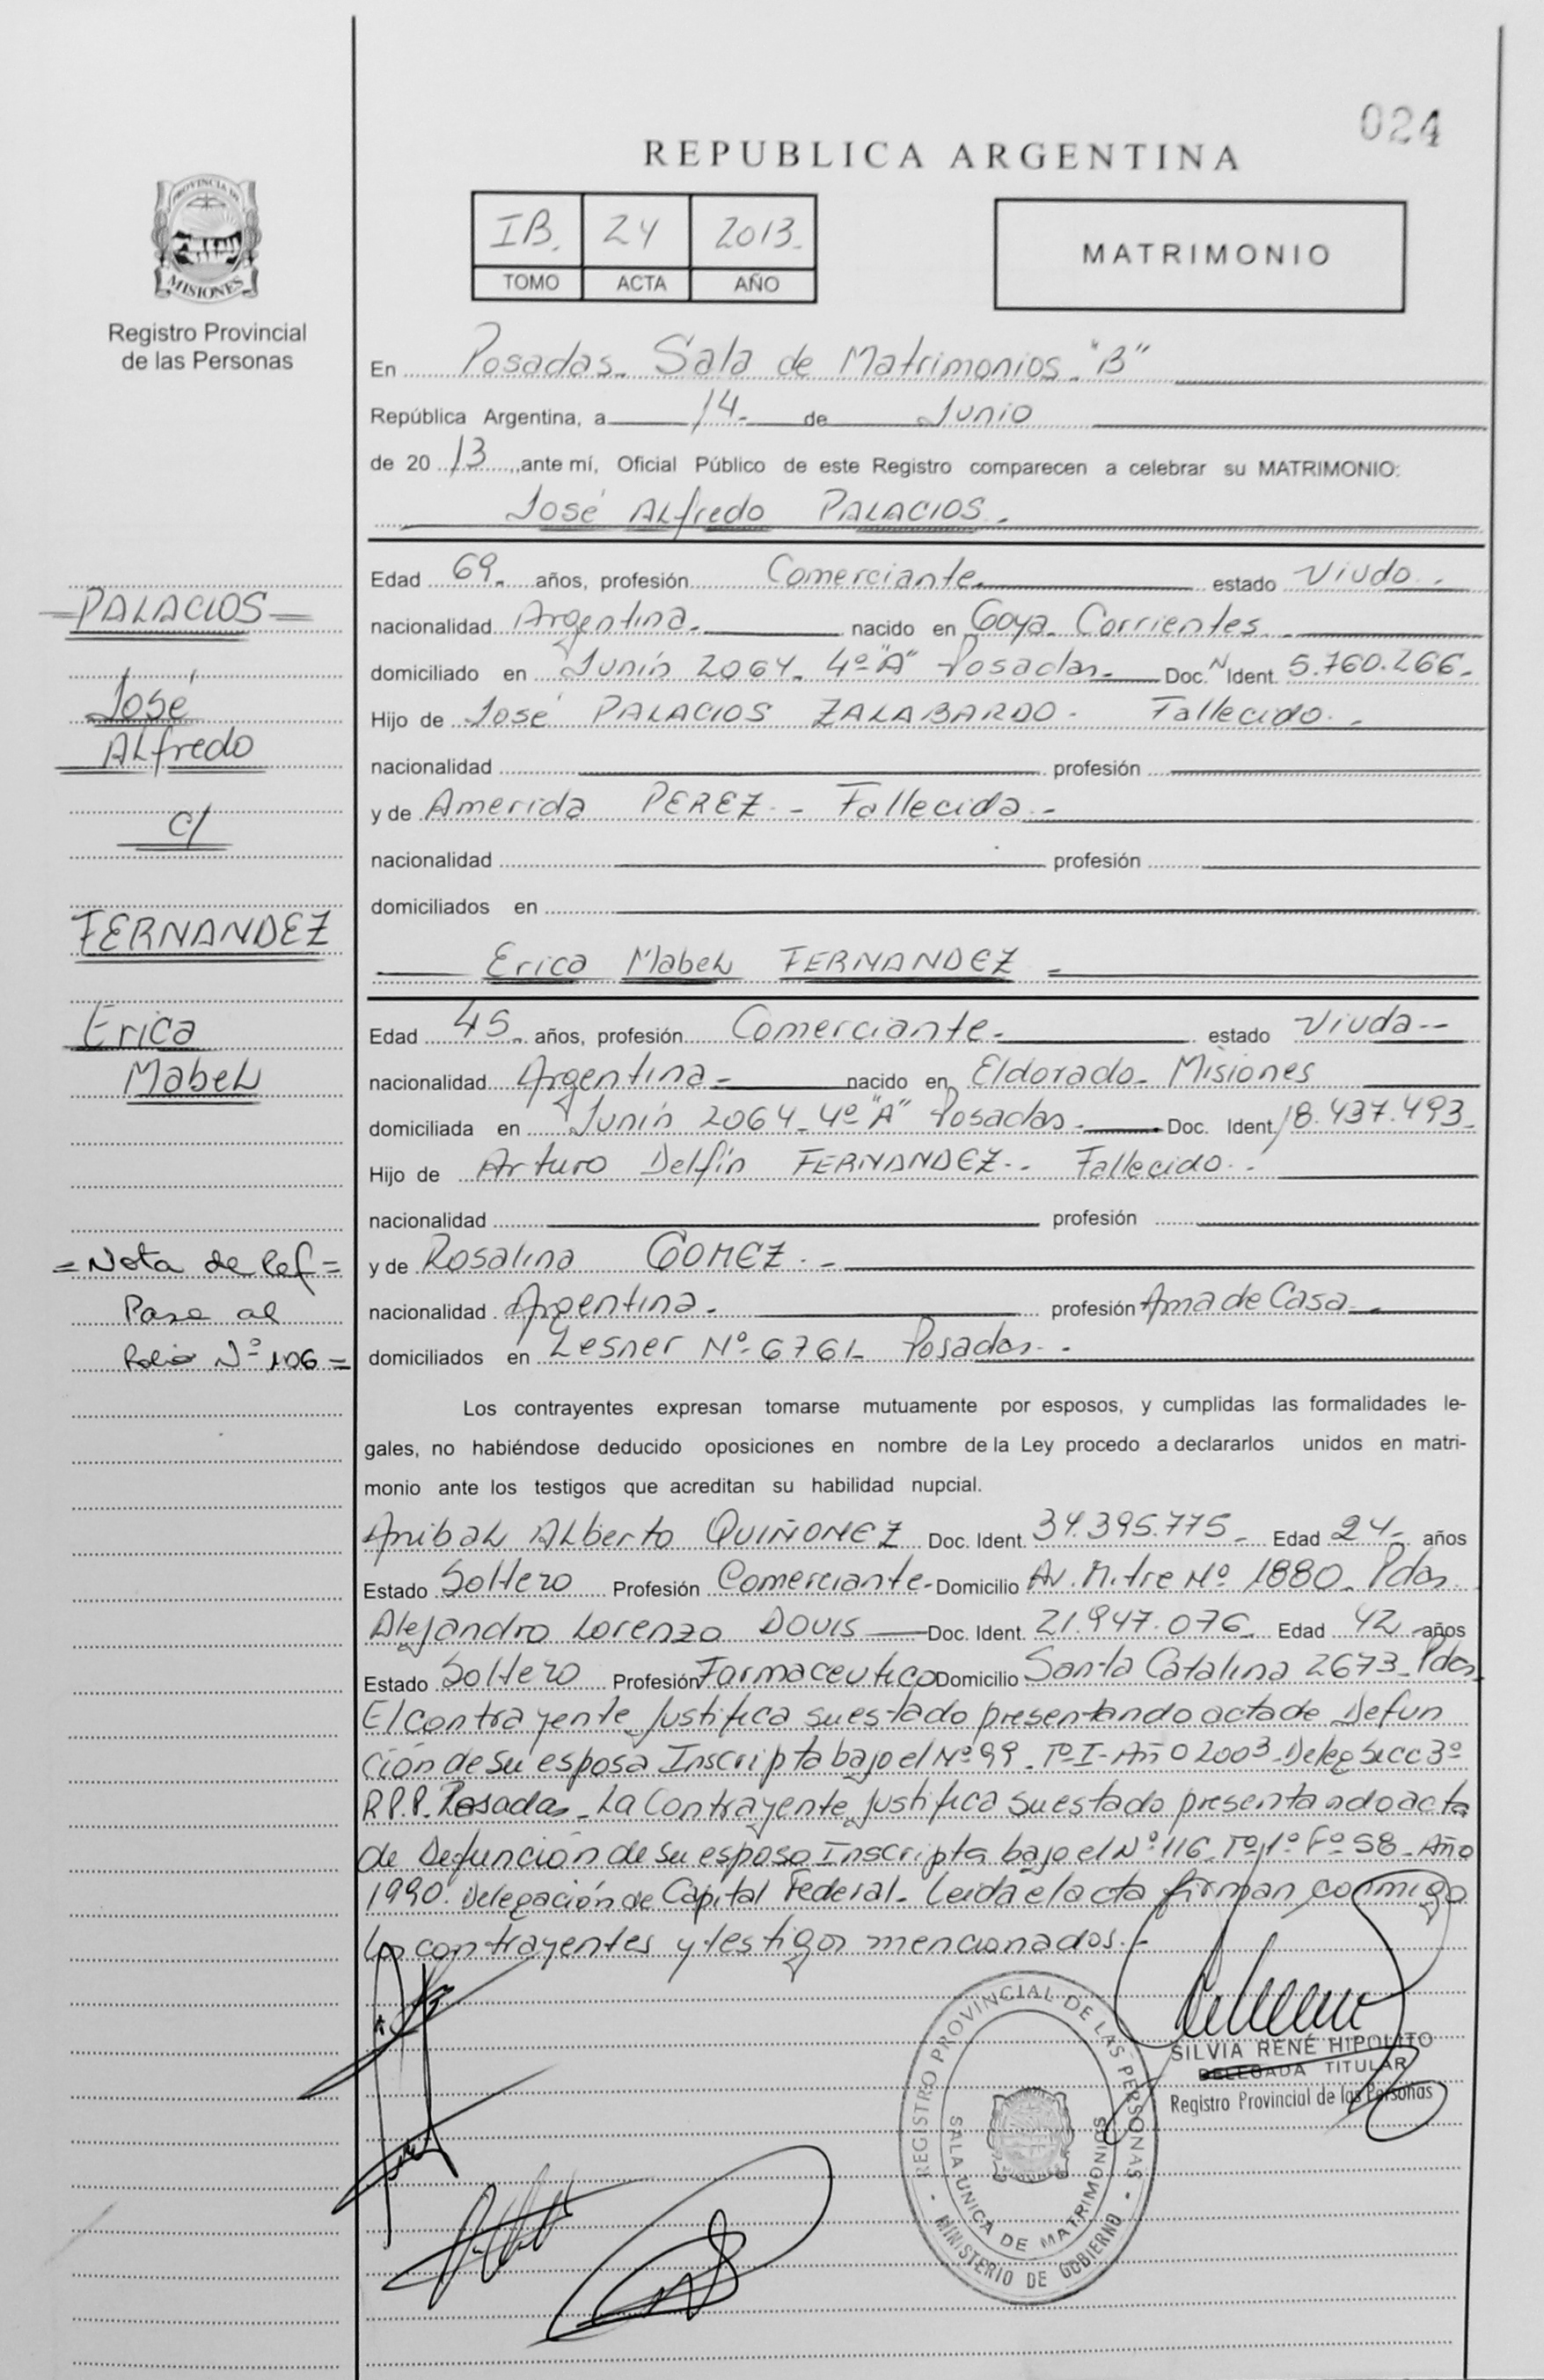 024
REPUBLICA ARGENTINA
PROVINCIA DE
MISIONES
Registro Provincial
de las Personas
IB. 24 2013.
TOMO ACTA AÑO
MATRIMONIO
En Posadas. Sala de Matrimonios. "B"
República Argentina, a 14. de Junio
de 20 13 ,ante mí, Oficial Público de este Registro comparecen a celebrar su MATRIMONIO:
José ALfredo PALACIOS.
Edad 69. años, profesión Comerciante. estado Viudo.
nacionalidad Argentina. nacido en Goya. Corrientes
domiciliado en Junín 2064. 4º "A" Posadas. Doc. N Ident. 5.760.266.
Hijo de José PALACIOS ZALABARDO - Fallecido.
nacionalidad profesión
y de Amerida PEREZ - Fallecida
nacionalidad profesión
domiciliados en
Erica MabeL FERNANDEZ
Edad 45. años, profesión Comerciante. estado Viuda
nacionalidad Argentina nacido en Eldorado. Misiones
domiciliada en Junín 2064. 4º "A" Posadas. Doc. Ident. 18.437.493.
Hijo de Arturo Delfín FERNANDEZ. Fallecido.
nacionalidad profesión
y de Rosalina GOMEZ.
nacionalidad Argentina. profesión Ama de Casa
domiciliados en Lesner Nº 6761 Posadas.
PALACIOS
José
ALfredo
c/
FERNANDEZ
Erica
MabeL
= Nota de Ref =
Pase al
Folio Nº 106 =
Los contrayentes expresan tomarse mutuamente por esposos, y cumplidas las formalidades le-
gales, no habiéndose deducido oposiciones en nombre de la Ley procedo a declararlos unidos en matri-
monio ante los testigos que acreditan su habilidad nupcial.
AnibaL ALberto QUIÑONEZ Doc. Ident. 34.395.775 Edad 24 años
Estado Soltero Profesión Comerciante Domicilio Av. Mitre Nº 1880. Pdas.
Alejandro Lorenzo DOUIS Doc. Ident. 21.947.076 Edad 42 años
Estado Soltero Profesión Farmaceutico Domicilio Santa Catalina 2673. Pdas
El contrayente Justifica su estado presentando acta de Defun
ción de su esposa Inscripta bajo el Nº 99. Tº I- Año 2003 Deleg Secc 3º
R.P.P. Posadas. La Contrayente Justifica su estado presentando acta
de Defunción de su esposo Inscripta bajo el Nº 116 Tº 1º Fº 58 Año
1990. Delegación de Capital Federal. Leída el acta firman conmigo
los contrayentes y testigos mencionados.
SILVIA RENÉ HIPOLITO
DELEGADA TITULAR
Registro Provincial de las Personas
REGISTRO PROVINCIAL DE LAS PERSONAS
SALA UNICA DE MATRIMONIOS
MINISTERIO DE GOBIERNO